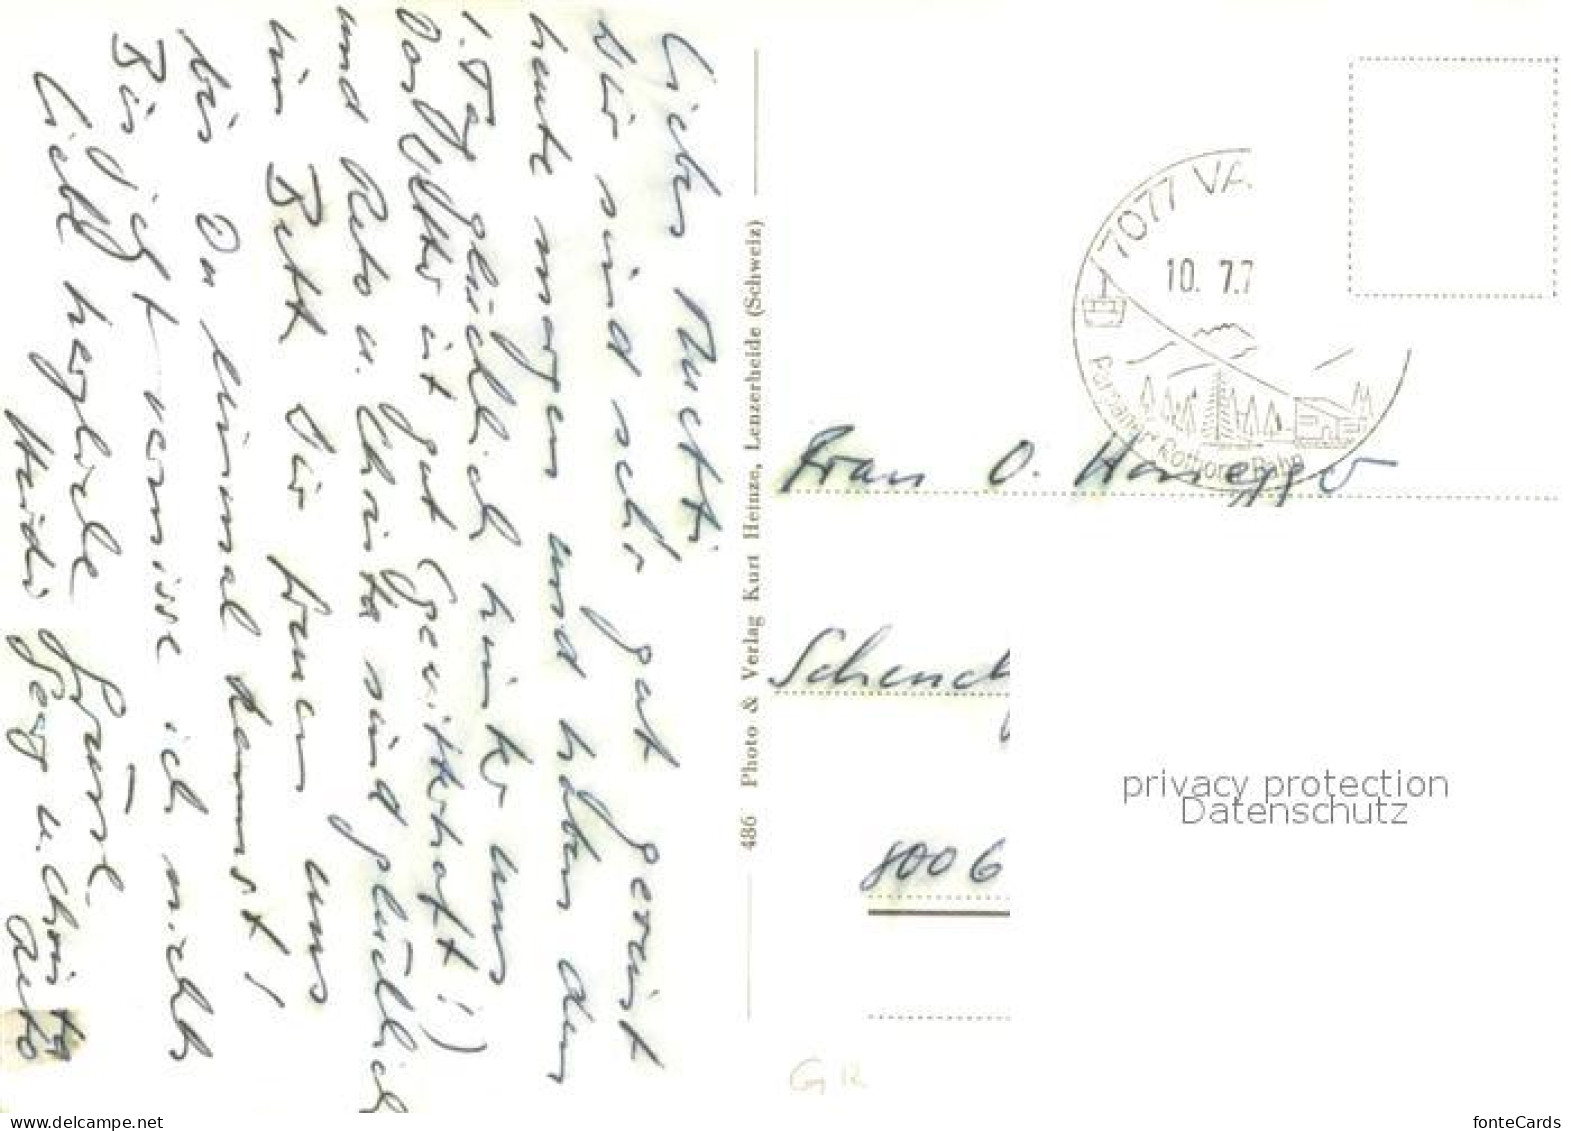 Liebes Muetti
Wir sind sehr gut gereist
heute morgen und haben den
1. Tag glücklich hinter uns
Das Wetter ist gut (gewitterhaft!)
und Reto u. Christa sind glücklich
im Bett. Wir freuen uns
bis Du einmal kommst!
Bis jetzt vermisse ich nichts
Liebe herzliche Grüsse
Heidi Georg u. Christa
Reto
486 Photo & Verlag Kurt Heinze, Lenzerheide (Schweiz)
7077 VA
10. 7.7
Parpaner Rothorn Bahn
Frau O. Honegger
Schench
8006
privacy protection
Datenschutz
GR
www.delcampe.net
fonteCards